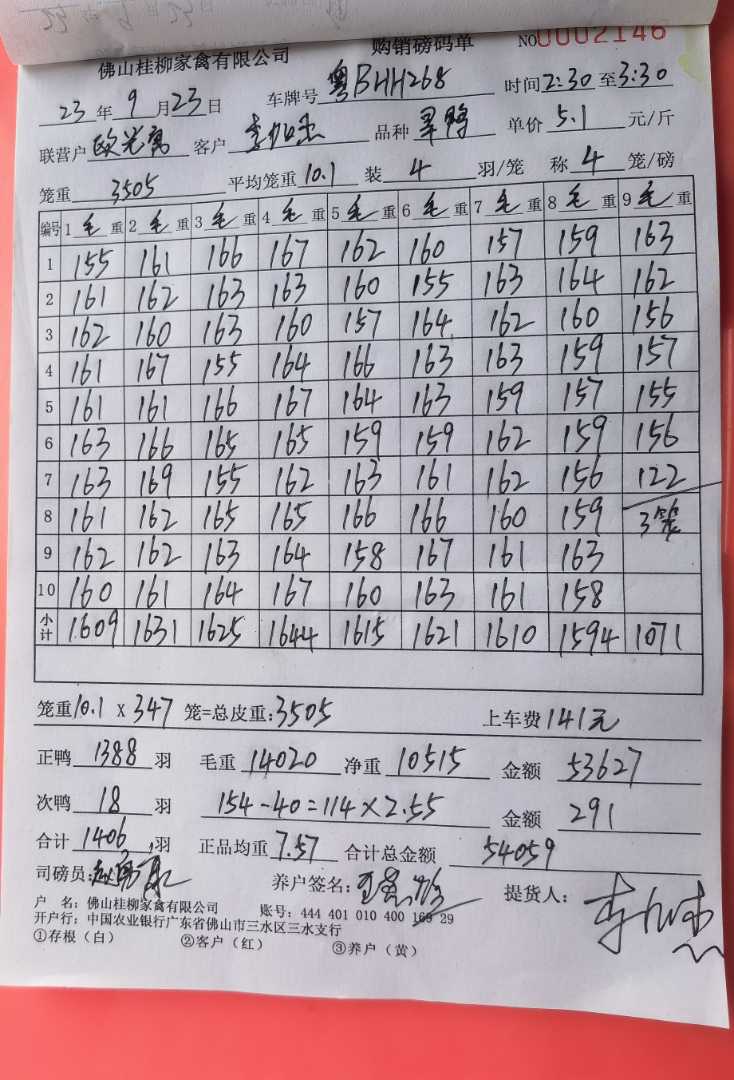 佛山桂柳家禽有限公司 购销磅码单 NO0002146
23年9月23日 车牌号粤BHH268 时间2:30至3:30
联营户 客户 品种 单价5.1元/斤
笼重3505 平均笼重10.1 装4羽/笼 称4笼/磅
编号 1毛重 2毛重 3毛重 4毛重 5毛重 6毛重 7毛重 8毛重 9毛重
1 155 161 166 167 162 160 157 159 163
2 161 162 163 163 160 155 163 164 162
3 162 160 163 160 157 164 162 160 156
4 161 167 155 164 166 163 163 159 157
5 161 161 166 167 164 163 159 157 155
6 163 166 165 165 159 159 162 159 156
7 163 169 155 162 163 161 162 156 122
8 161 162 165 165 166 166 160 159 3笼
9 162 162 163 164 158 167 161 163
10 160 161 164 167 160 163 161 158
小计 1609 1631 1625 1644 1615 1621 1610 1594 1071
笼重10.1 x 347笼=总皮重:3505 上车费141元
正鸭1388羽 毛重14020 净重10515 金额53627
次鸭18羽 154-40=114×2.55 金额291
合计1406羽 正品均重7.57 合计总金额54059
司磅员: 养户签名: 提货人:
户 名:佛山桂柳家禽有限公司 账号:444 401 010 400 169 29
开户行:中国农业银行广东省佛山市三水区三水支行
①存根(白) ②客户(红) ③养户(黄)